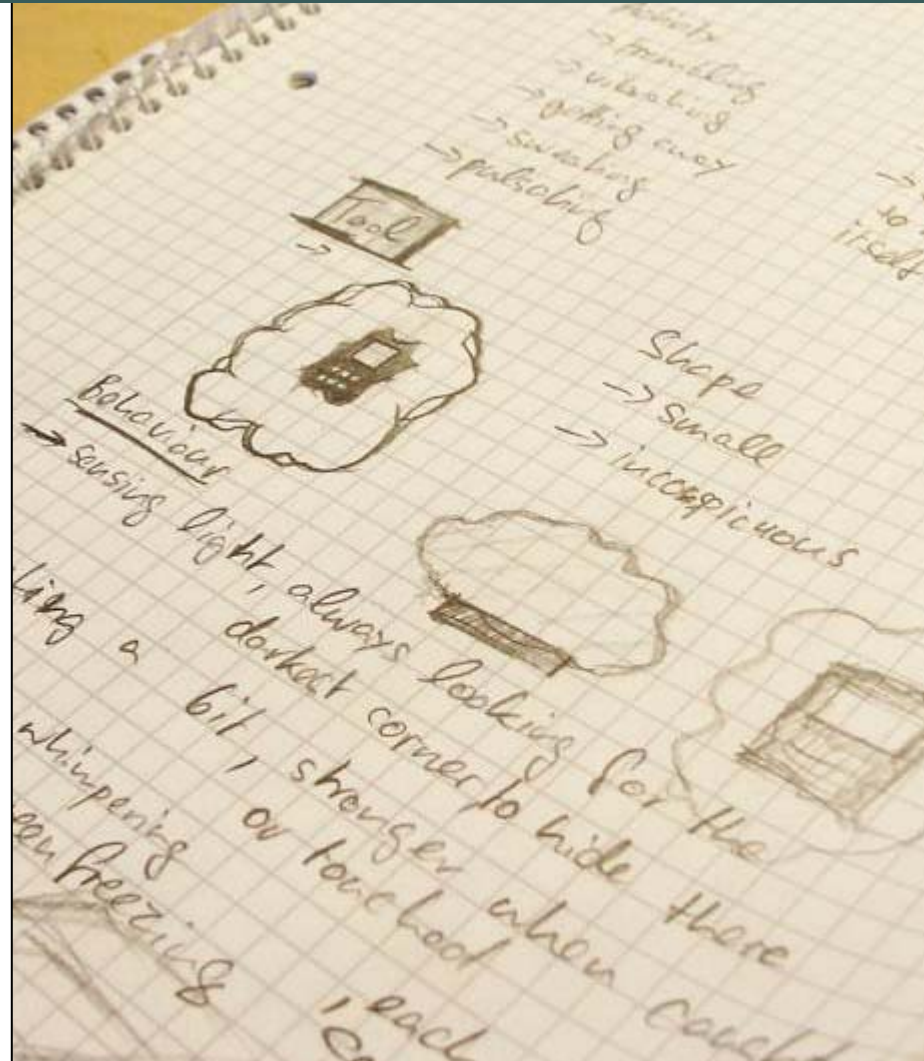 Activity
-> trembling
-> vibrating
-> getting away
-> sweating
-> pulsating
->
to
itself
Tool
->
Shape
-> small
-> incospicuous
Behaviour
-> sensing light, always looking for the
darkest corner to hide there
a bit, stronger when
or touched
whimpering
freezing
, each